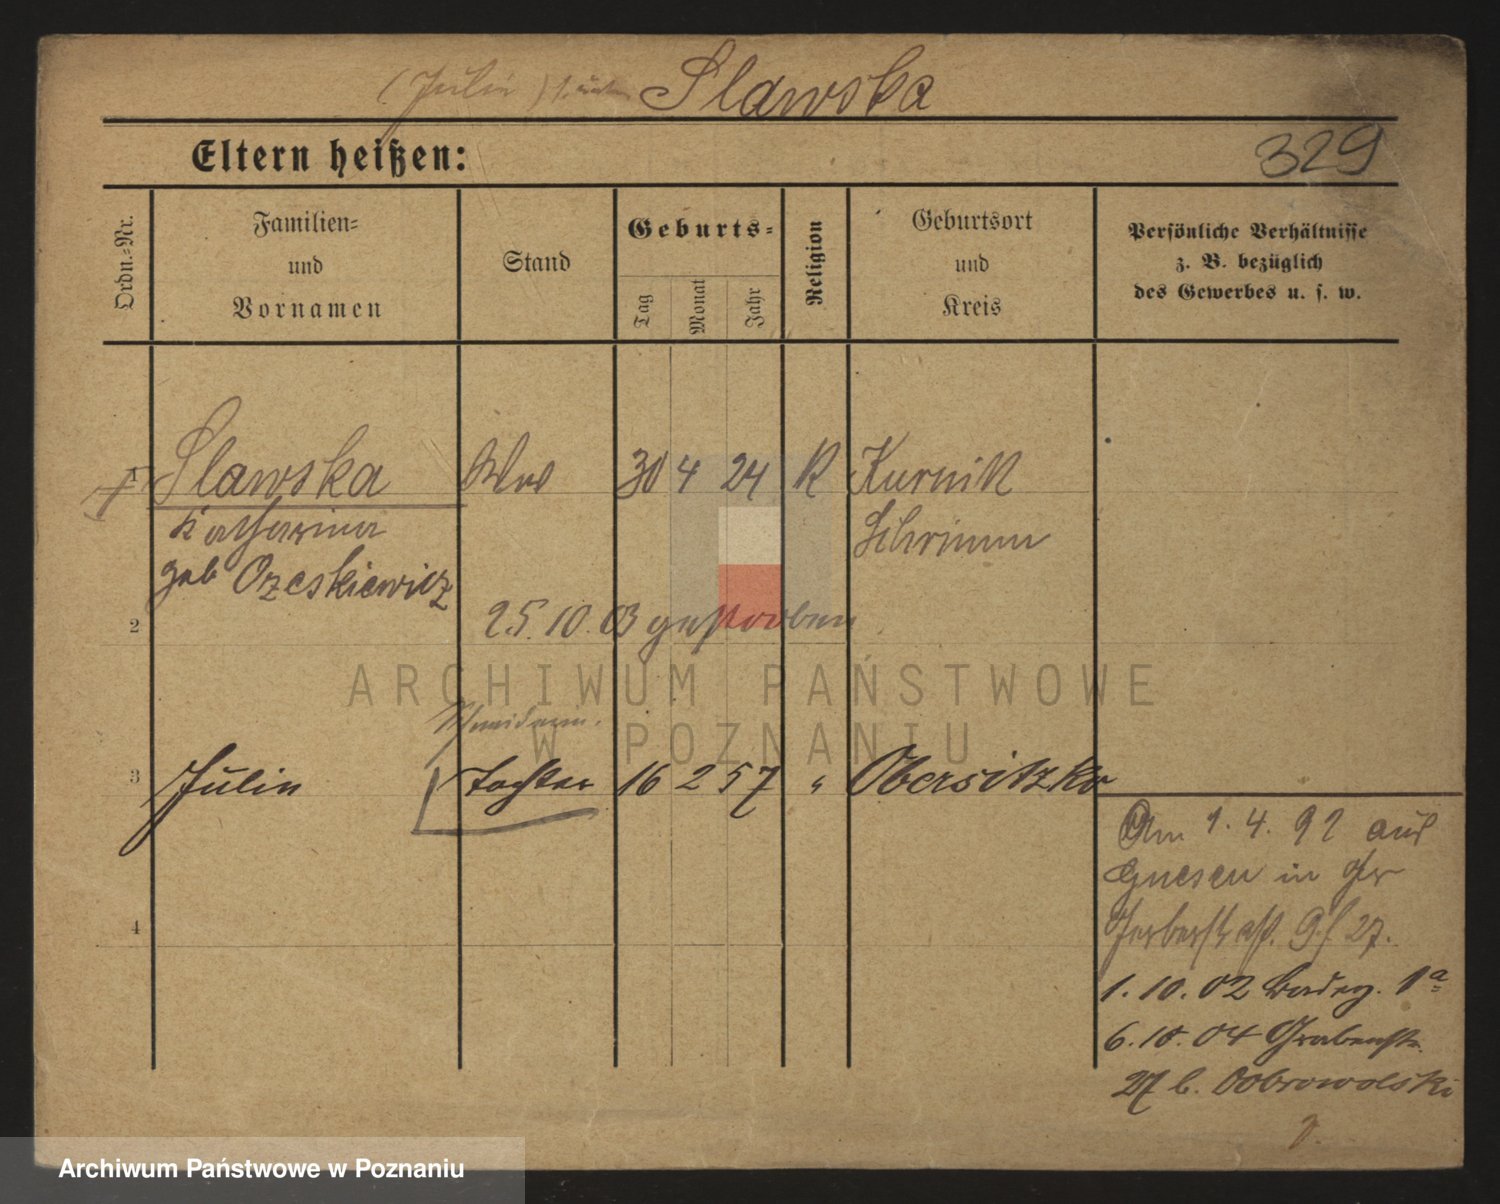 (Julie) Slawska
Eltern heißen:
329
Ordn.-Nr.
Familien-
und
Vornamen
Stand
Geburts-
Tag
Monat
Jahr
Religion
Geburtsort
und
Kreis
Persönliche Verhältnisse
z. B. bezüglich
des Gewerbes u. s. w.
1 Slawska Wwe 30 4 24 K Kurnik
Katharina Schrimm
geb Ozeskiewicz
2
25.10.03 gestorben
ARCHIWUM PAŃSTWOWE
W POZNANIU
Schneiderin.
3 Julie Tochter 16 2 57 " Obersitzko
Am 1.4.92 aus
Gnesen in
4
27.
1.10.02 1a
6.10.04 Grabenstr.
27 b. Dobrowolski
Archiwum Państwowe w Poznaniu